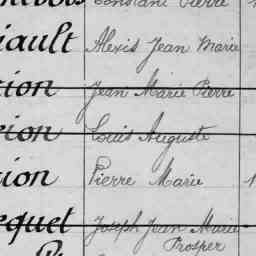 Constant Pierre
iault Alexis Jean Marie
ion Jean Marie Pierre
ion Louis Auguste
ion Pierre Marie 1
equet Joseph Jean Marie
Prosper